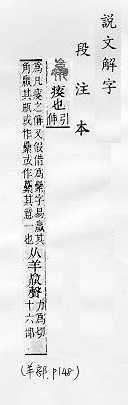 說文解字
段注本
羸 瘦也 引伸
爲凡瘦之偁又假借爲纍字易羸其
角羸其瓶或作纍或作虆其意一也
从羊𣎆聲
力爲切
十六部
(羊部.P148)